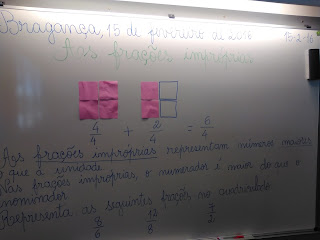 Bragança, 15 de fevereiro de 2016
15-2-16
As frações impróprias
4/4 + 2/4 = 6/4
As frações impróprias representam números maiores
que a unidade.
Nas frações impróprias, o numerador é maior do que o
nominador
Representa as seguintes frações no
6 12 7
8 2